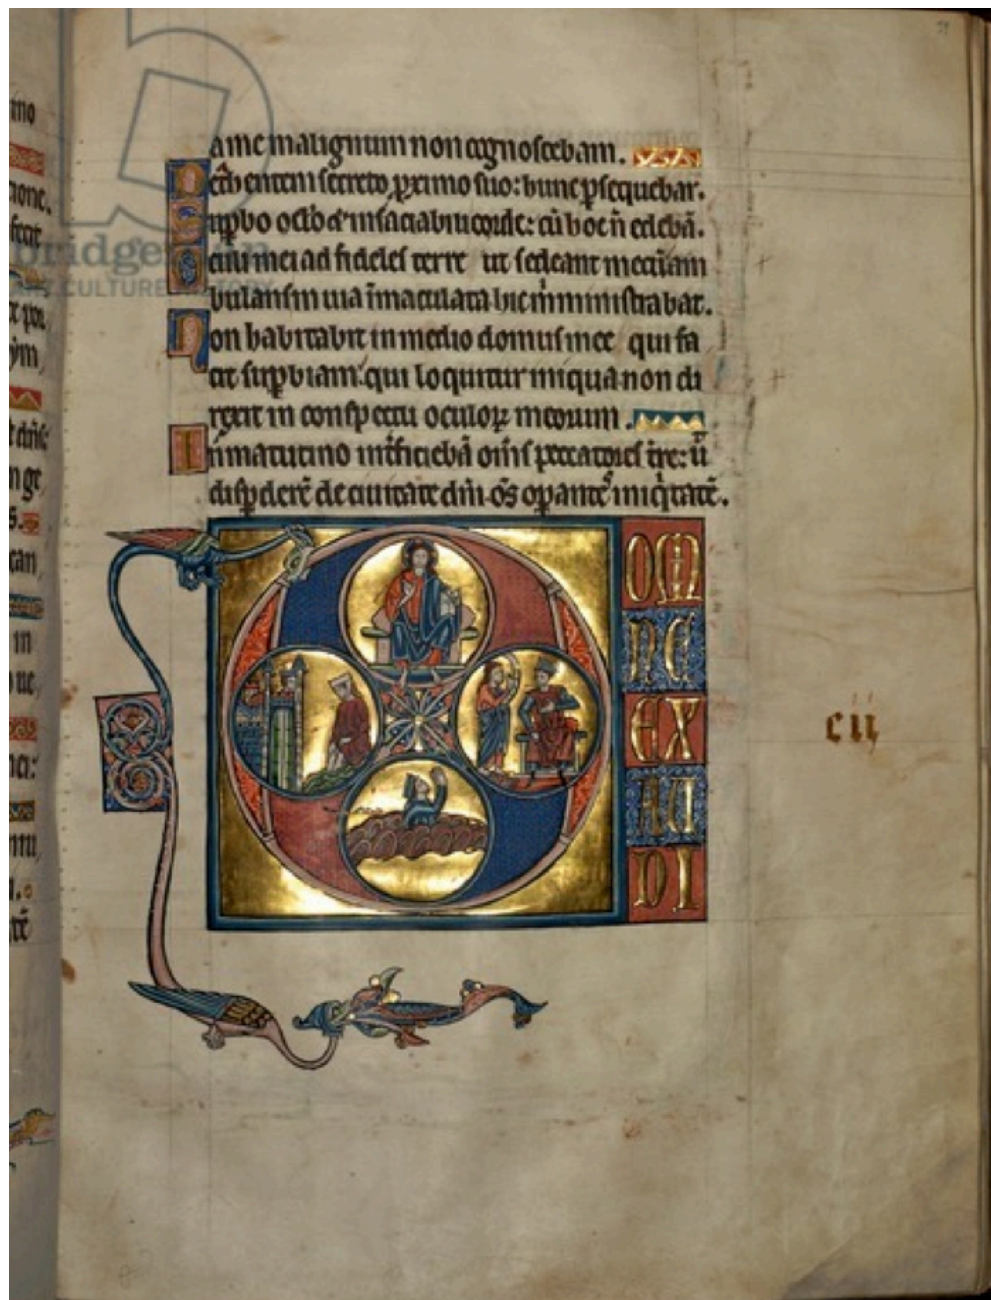 ame malignum non cognoscebam.
Det̄hentem sc̄reto ꝓximo suo: hunc ꝑsequebar.
Suꝑbo oclo & insaciabili corde: cū hoc n̄ edebā.
Oculi mei ad fideles terre ut sedeant mecū am
bulans in uia īmaculata hic ṁ ministrabat.
Non habitabit in medio domus mee qui fa
cit suꝑbiam: qui loquitur iniqua non di
rexit in conspectu oculoꝝ meorum.
In matutino int̄ficiebā om̄s peccatores t̄re: ut
disꝑderē de ciuitate dn̄i om̄s oꝑantes iniq̇tatē.
OM
NE
EX
AU
DI
cii
bridgeman
ART CULTURE HISTORY